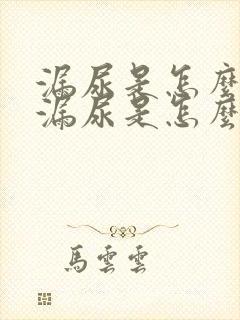 漏尿是怎麼
漏尿是怎麼
馬雲雲